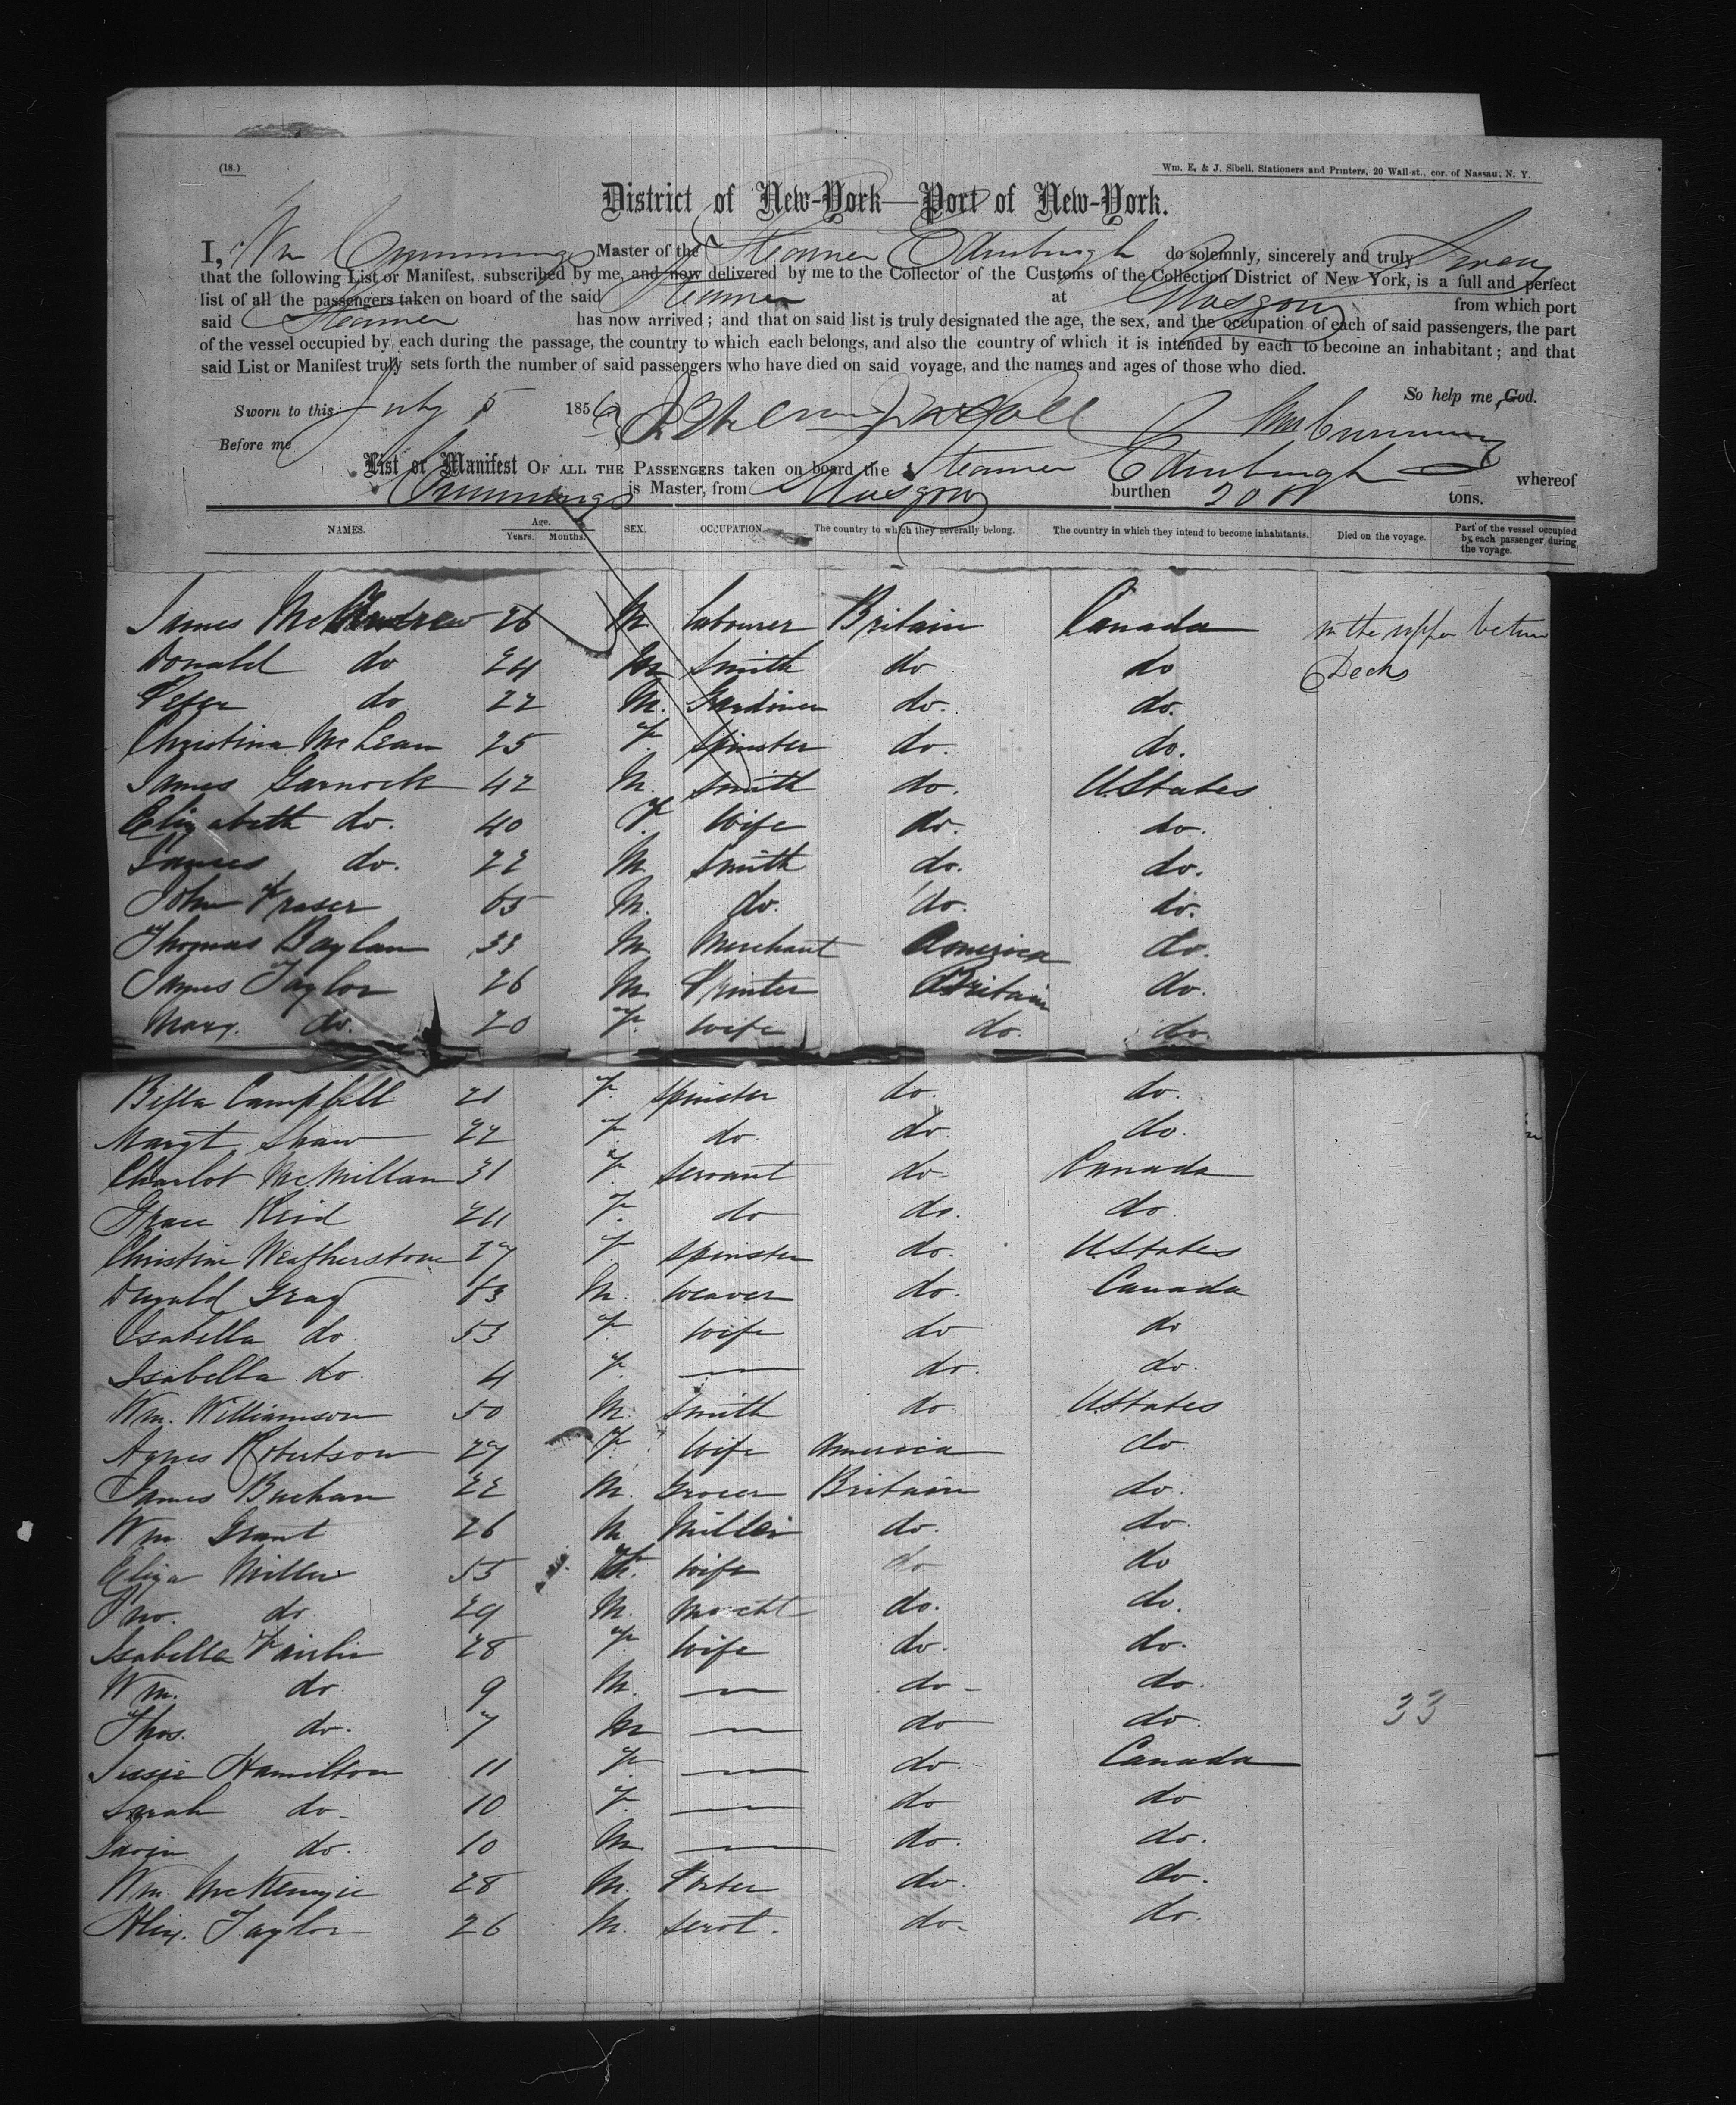 (18.)
Wm. E. & J. Sibell, Stationers and Printers, 20 Wall-st., cor. of Nassau, N. Y.
District of New-York—Port of New-York.
I, Wm Cummings Master of the Steamer Edinburgh do solemnly, sincerely and truly Swear
that the following List or Manifest, subscribed by me, and now delivered by me to the Collector of the Customs of the Collection District of New York, is a full and perfect
list of all the passengers taken on board of the said Steamer at Glasgow from which port
said Steamer has now arrived; and that on said list is truly designated the age, the sex, and the occupation of each of said passengers, the part
of the vessel occupied by each during the passage, the country to which each belongs, and also the country of which it is intended by each to become an inhabitant; and that
said List or Manifest truly sets forth the number of said passengers who have died on said voyage, and the names and ages of those who died.
So help me God.
Sworn to this July 5 1856
Wm Cumming
Before me
List or Manifest OF ALL THE PASSENGERS taken on board the Steamer Edinburgh whereof
Cummings is Master, from Glasgow burthen tons.
NAMES. Age. Years. Months. SEX. OCCUPATION. The country to which they severally belong. The country in which they intend to become inhabitants. Died on the voyage. Part of the vessel occupied by each passenger during the voyage.
James McAndrew 26 M Labourer Britain Canada in the upper between
Donald do 24 M Smith do do Decks
Peter do 22 M. Gardiner do. do.
Christina McLean 25 F. Spinster do. do.
James Garnock 42 M. Smith do. UStates
Elizabeth do. 40 F. Wife do. do.
James do. 22 M. Smith do. do.
John Fraser 65 M. do. do. do.
Thomas Baylan 33 M. Merchant America do.
James Taylor 26 M. Printer Britain do.
Mary. do. 20 F. Wife do. do.
Bessa Campbell 21 F. Spinster do. do.
Margt Shaw 22 F. do. do. do.
Charlot McMillan 31 F. Servant do. Canada
Grace Reid 24 F. do do. do.
Christina Weatherstone 27 F. Spinster do. UStates
Dugald Gray 63 M. Weaver do. Canada
Isabella do. 53 F. Wife do do
Isabella do. 4 F. — do. do.
Wm. Williamson 50 M. Smith do. UStates
Agnes Robertson 27 F. Wife America do.
James Buchan 22 M. Grocer Britain do.
Wm. Grant 26 M. Miller do. do.
Eliza Miller 55 F. Wife do do
Jno. do. 29 M. Mercht do. do.
Isabella Fairlie 28 F. Wife do. do.
Wm. do 9 M. — do - do.
Thos. do. 7 M — do do. 33
Jessie Hamilton 11 F. — do. Canada
Sarah do. 10 F. — do do
Gavin do. 10 M — do. do.
Wm. McKenzie 28 M. Porter do. do.
Alex. Taylor 26 M. Servt. do. do.